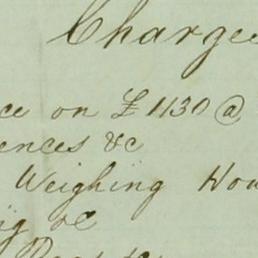 Charge
ce on £ 1130 @
ences &c
Weighing Hou
ig &c